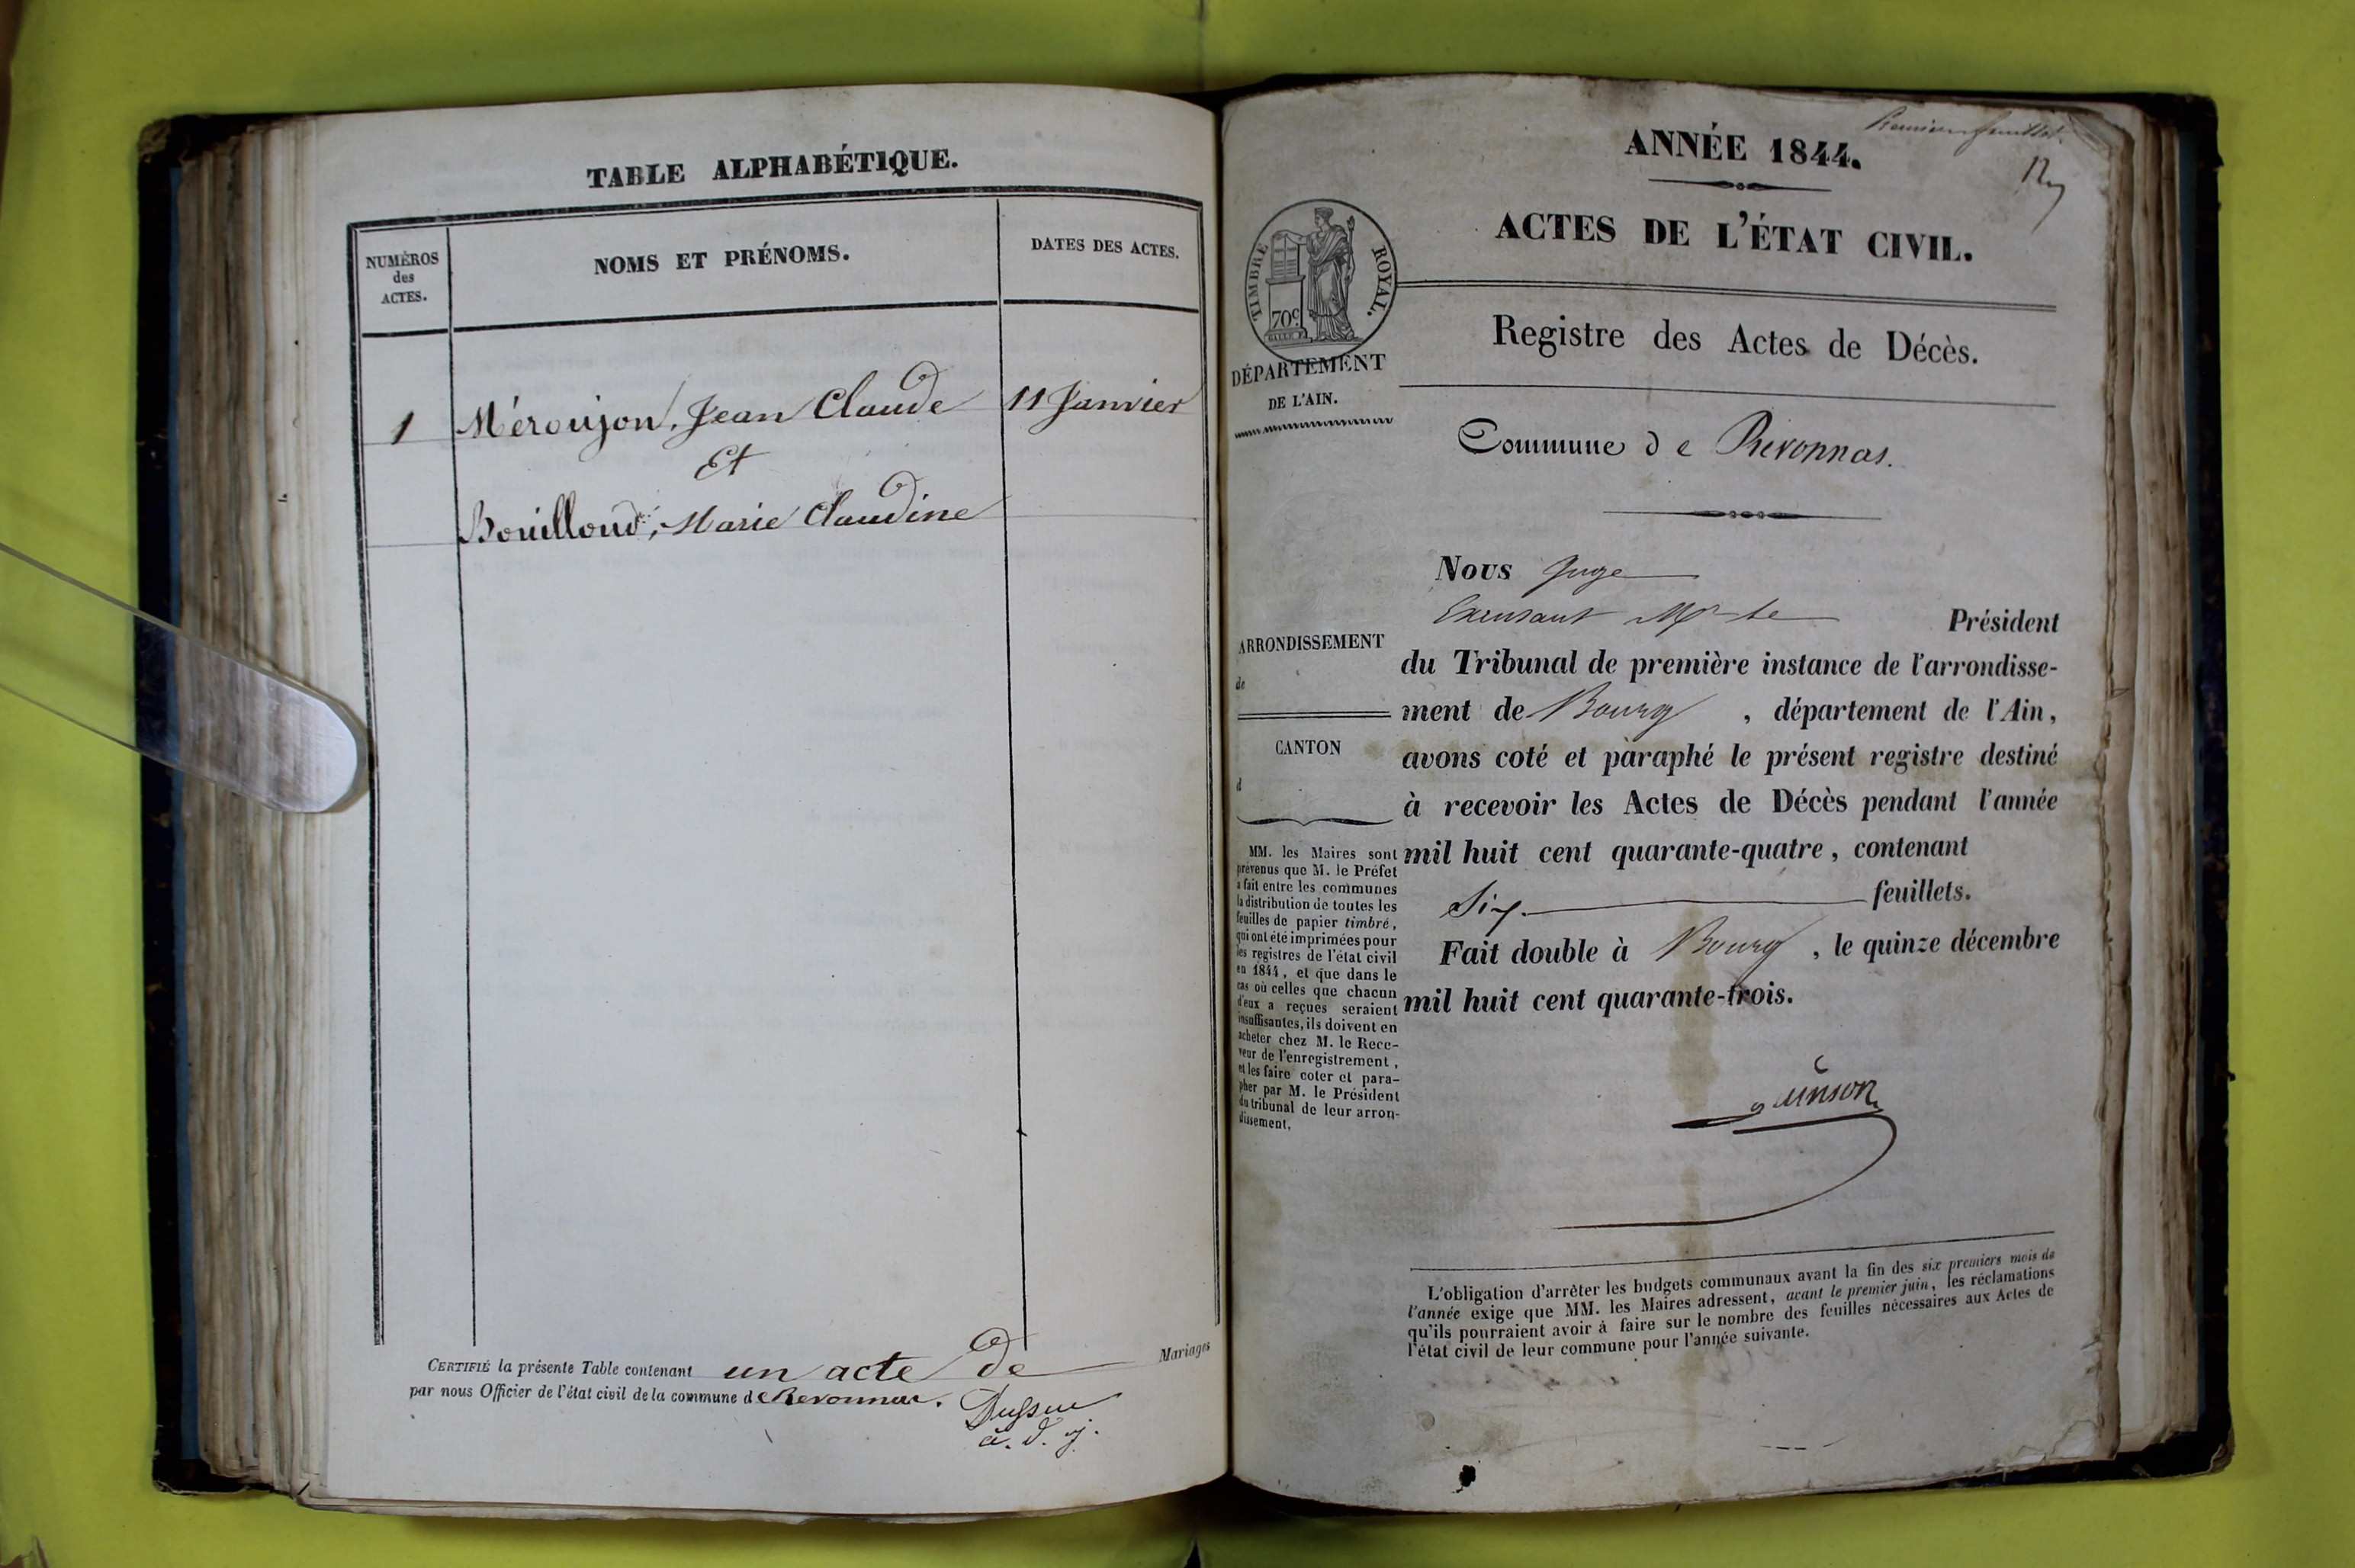 TABLE ALPHABÉTIQUE.
NUMÉROS
des
ACTES.
NOMS ET PRÉNOMS.
DATES DES ACTES.
1 Méroujon, Jean Claude 11 Janvier
Et
Bouilloud, Marie Claudine
CERTIFIÉ la présente Table contenant un acte de Mariages
par nous Officier de l'état civil de la commune de Revonnas.
a. d. j.
Premier feuillet.
ANNÉE 1844.
ACTES DE L'ÉTAT CIVIL.
TIMBRE ROYAL.
70c
DÉPARTEMENT
DE L'AIN.
Registre des Actes de Décès.
Commune de Revonnas.
ARRONDISSEMENT
de
CANTON
d
MM. les Maires sont
prévenus que M. le Préfet
a fait entre les communes
la distribution de toutes les
feuilles de papier timbré,
qui ont été imprimées pour
les registres de l'état civil
en 1844, et que dans le
cas où celles que chacun
d'eux a reçues seraient
insuffisantes, ils doivent en
acheter chez M. le Rece-
veur de l'enregistrement,
et les faire coter et para-
pher par M. le Président
du tribunal de leur arron-
dissement.
Nous Juge
Excusant Mr le Président
du Tribunal de première instance de l'arrondisse-
ment de Bourg, département de l'Ain,
avons coté et paraphé le présent registre destiné
à recevoir les Actes de Décès pendant l'année
mil huit cent quarante-quatre, contenant
Six feuillets.
Fait double à Bourg, le quinze décembre
mil huit cent quarante-trois.
L'obligation d'arrêter les budgets communaux avant la fin des six premiers mois de
l'année exige que MM. les Maires adressent, avant le premier juin, les réclamations
qu'ils pourraient avoir à faire sur le nombre des feuilles nécessaires aux Actes de
l'état civil de leur commune pour l'année suivante.